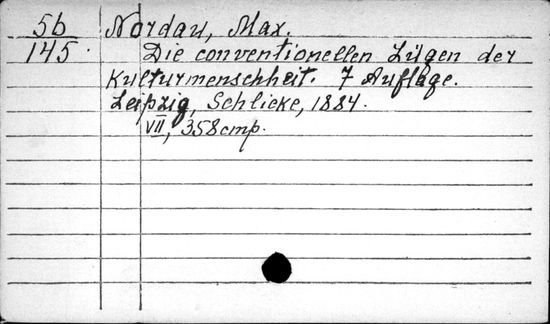 5б Nordau, Max.
145. Die conventionellen Lügen der
Kulturmenschheit. 7 Auflage.
Leipzig, Schlicke, 1884.
VII, 358 стр.